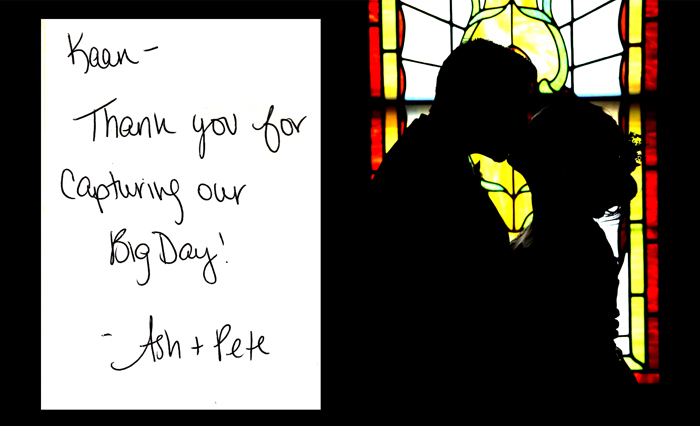 Kaan-
Thank you for
Capturing our
Big Day!
- Ash + Pete